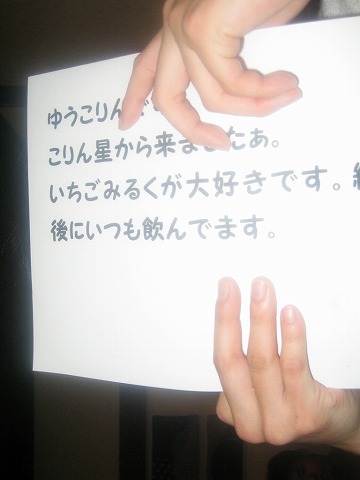 ゆうこりん
こりん星から来ましたぁ。
いちごみるくが大好きです。
後にいつも飲んでます。